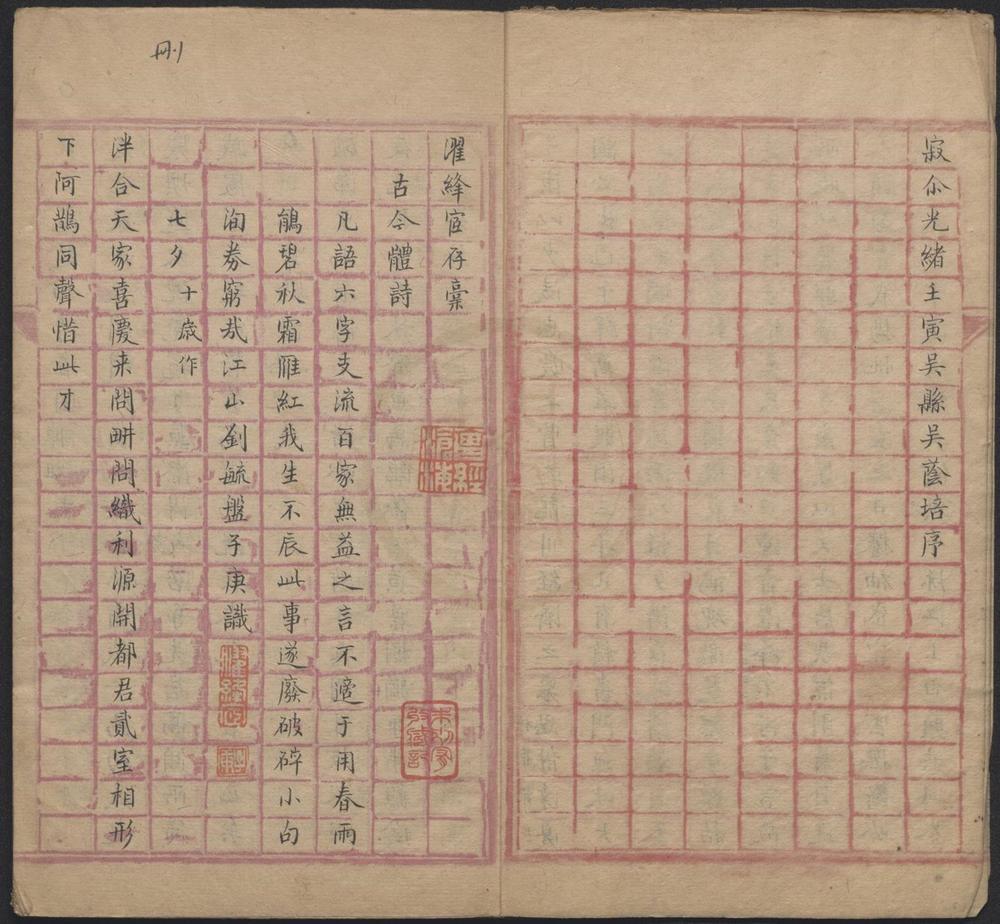 寂尒光緒壬寅吳縣吳蔭培序
濯絳宧存稾
古今體詩
凡語六字支流百家無益之言不適于用春雨
鵑碧秋霜雁紅我生不辰此事遂廢破碎小句
洵券窮㢤江山劉毓盤子庚識
七夕 十歲作
泮合天家喜慶来問畊問織利源開都君貳室相形
下阿鵲同聲惜此才
刪